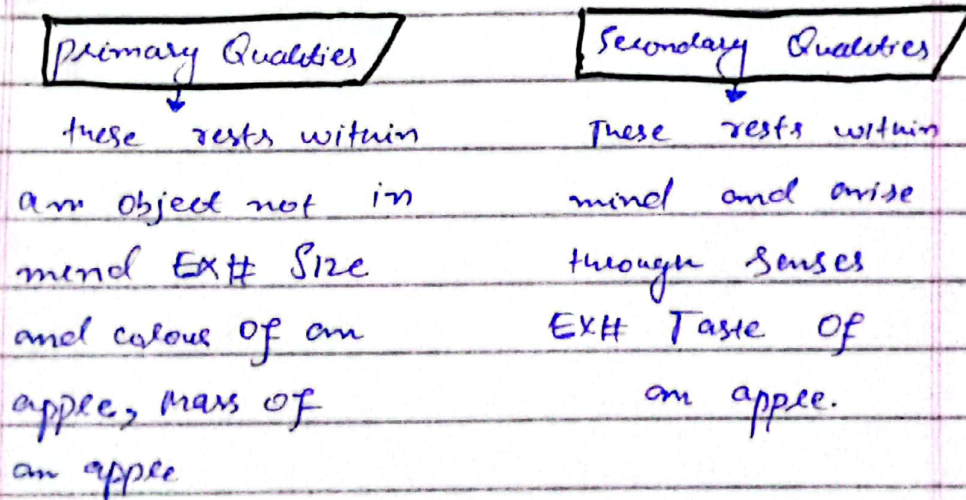 Primary Qualities
these rests within
an object not in
mind EX# Size
and colour of an
apple, mass of
an apple
Secondary Qualities
These rests within
mind and arise
through senses
EX# Taste of
an apple.